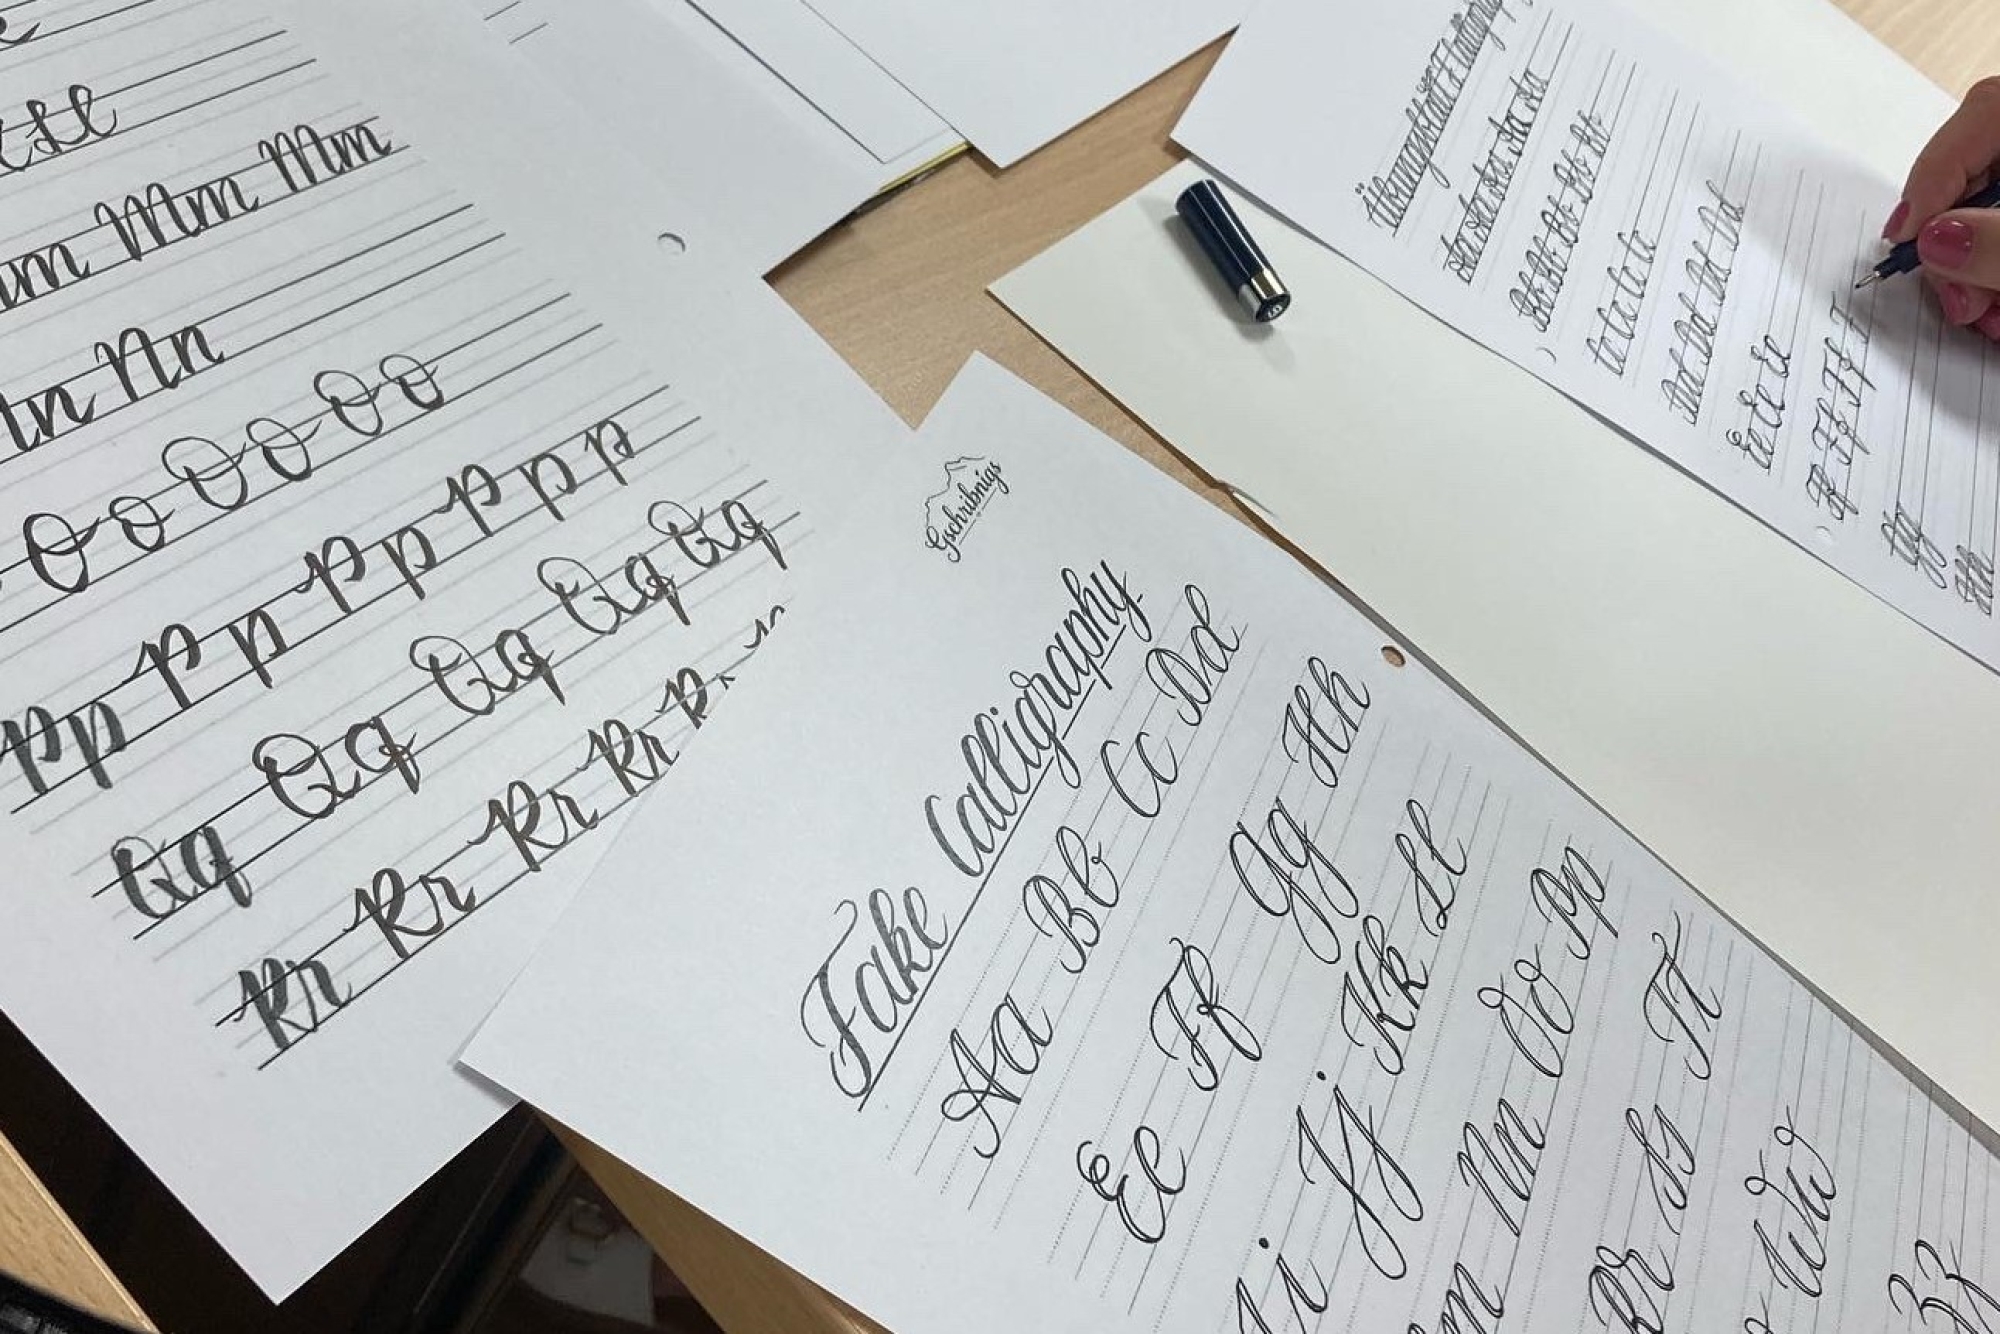 Mm Mm
Nn
O o O o O o
P p P p P p p
Qq Qq Qq Qq Qq
Rr Rr Rr Rr
Gschribnigs
Fake Calligraphy
Aa Bb Cc Dd
Ee Ff Gg Hh
Ii Jj Kk Ll
Nn Oo Pp
Rr Ss Tt
Ww
Zz
Übungsblatt Fake Calligraphy
Aa Aa Aa Aa Aa
Bb Bb Bb Bb Bb
Cc Cc Cc Cc
Dd Dd Dd Dd
Ee Ee Ee
Ff Ff Ff F
Gg
Hh